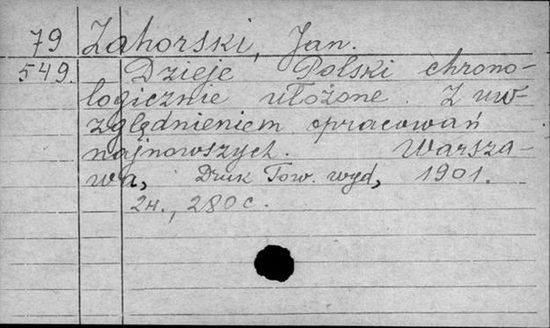 79 Zahorski, Jan.
549. Dzieje Polski chrono-
logicznie ułożone. Z uw-
zględnieniem opracowań
najnowszych. Warsza-
wa, Druk Tow. wyd, 1901.
2н., 280 с.